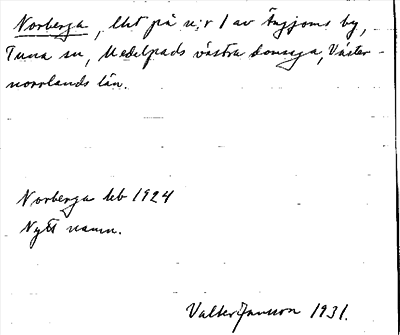 Norberga, lht på n:r 1 av Ängjoms by,
Tuna sn, Medelpads västra domsaga, Väster-
norrlands län.
Norberga lht 1924
Nytt namn.
Valter Jansson 1931.